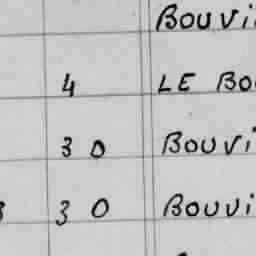 BOUVI
4 LE BO
30 BOUVI
3 30 BOUVI